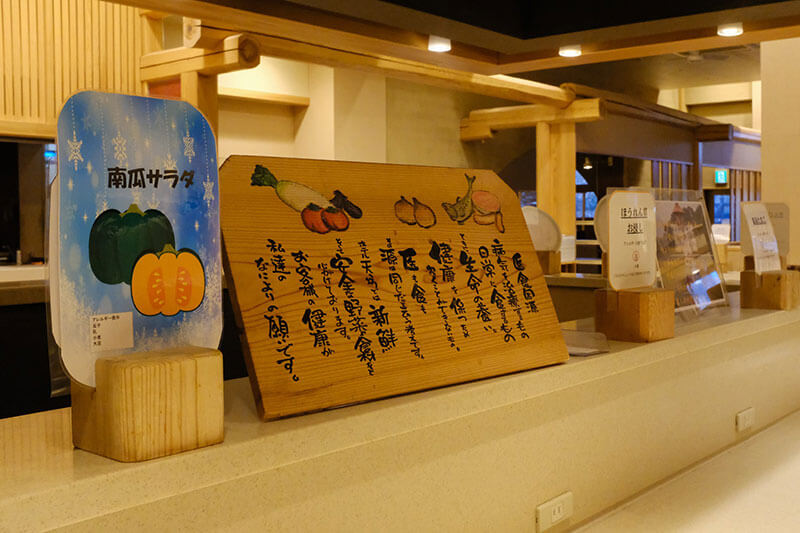 南瓜サラダ
アレルギー表示
医食同源
病気を治療するもの
日常に食するもの
ともに生命を養い、
健康を保つため
医も食も
源は同じだという考えです。
新鮮
安全な野菜、食材を
心がけております。
お客様の健康が
私達の
なによりの願いです。
ほうれん草
お浸し